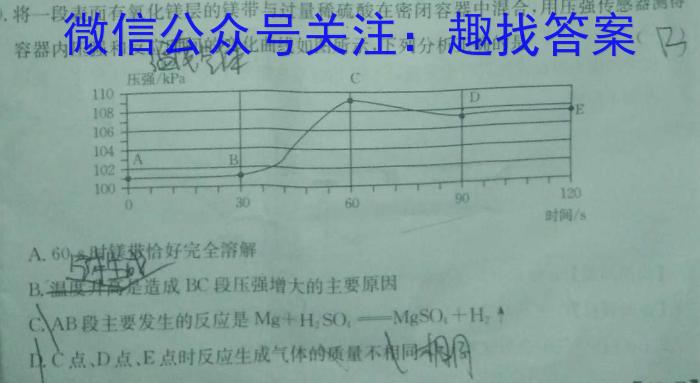 将一段表面有氧化镁层的镁带与过量稀硫酸在密闭容器中混合,用压强传感器测得
微信公众号关注:趣找答案
容器内
压强/kPa
110
108
106
104
102
100
A
B
C
D
E
0
30
60
90
120
时间/s
A. 60 s时镁带恰好完全溶解
B. 温度升高是造成BC段压强增大的主要原因
C. AB段主要发生的反应是Mg+H₂SO₄══MgSO₄+H₂↑
D. C点、D点、E点时反应生成气体的质量不相同 相同